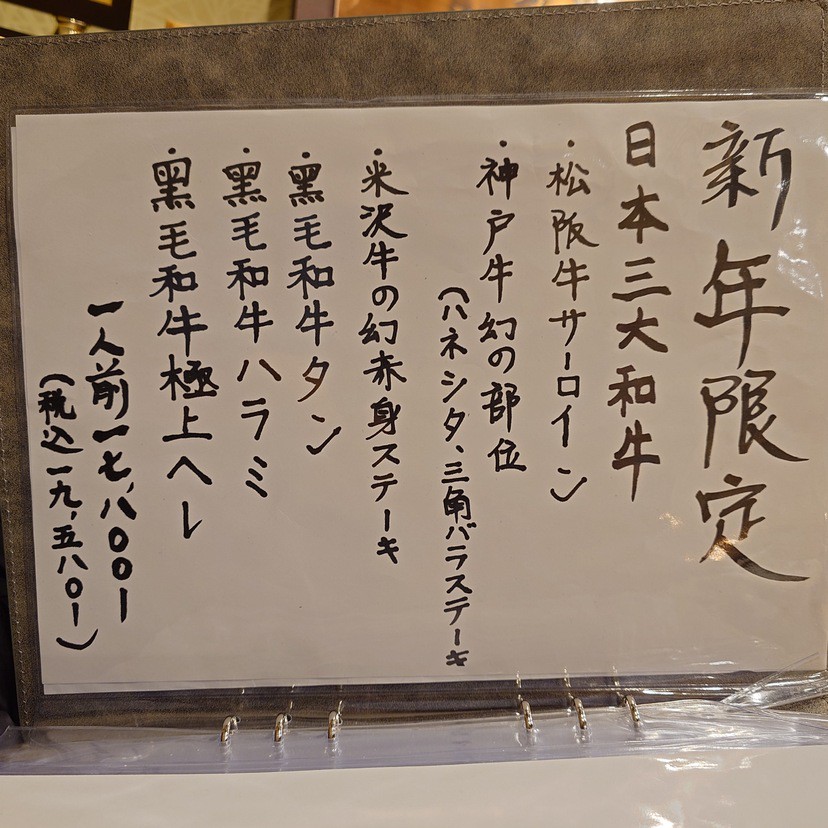 新年限定
日本三大和牛
・松阪牛サーロイン
・神戸牛幻の部位
(ハネシタ、三角バラステーキ
・米沢牛の幻赤身ステーキ
・黒毛和牛タン
・黒毛和牛ハラミ
・黒毛和牛極上ヘレ
一人前一七,八〇〇ー
(税込一九,五八〇ー)